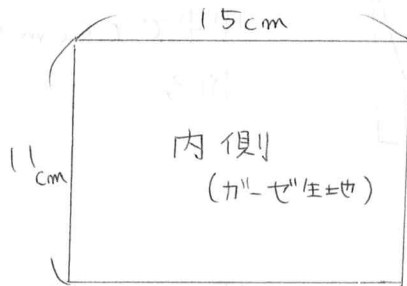 15cm
11cm
内側
(ガーゼ生地)